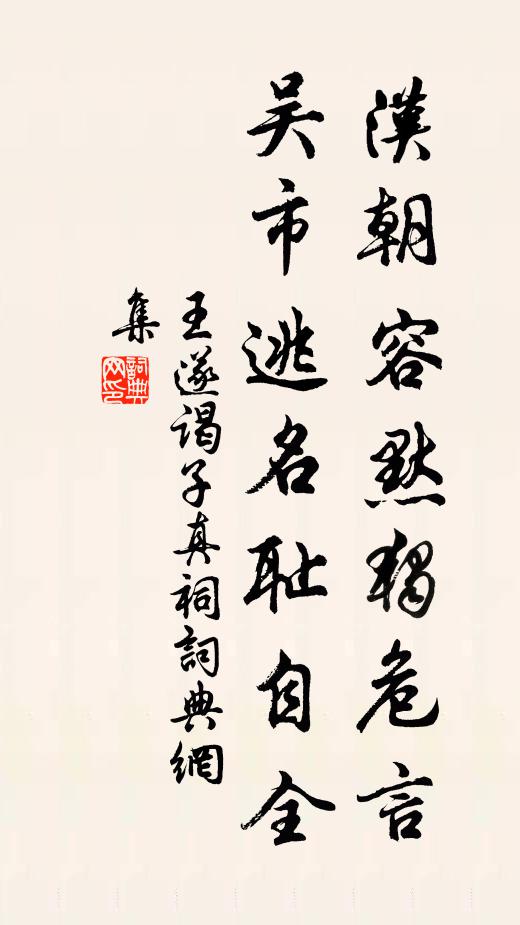 漢朝容默獨危言
吴市逃名耻自全
王遂謁子真祠詞典網
集
詞典
网印